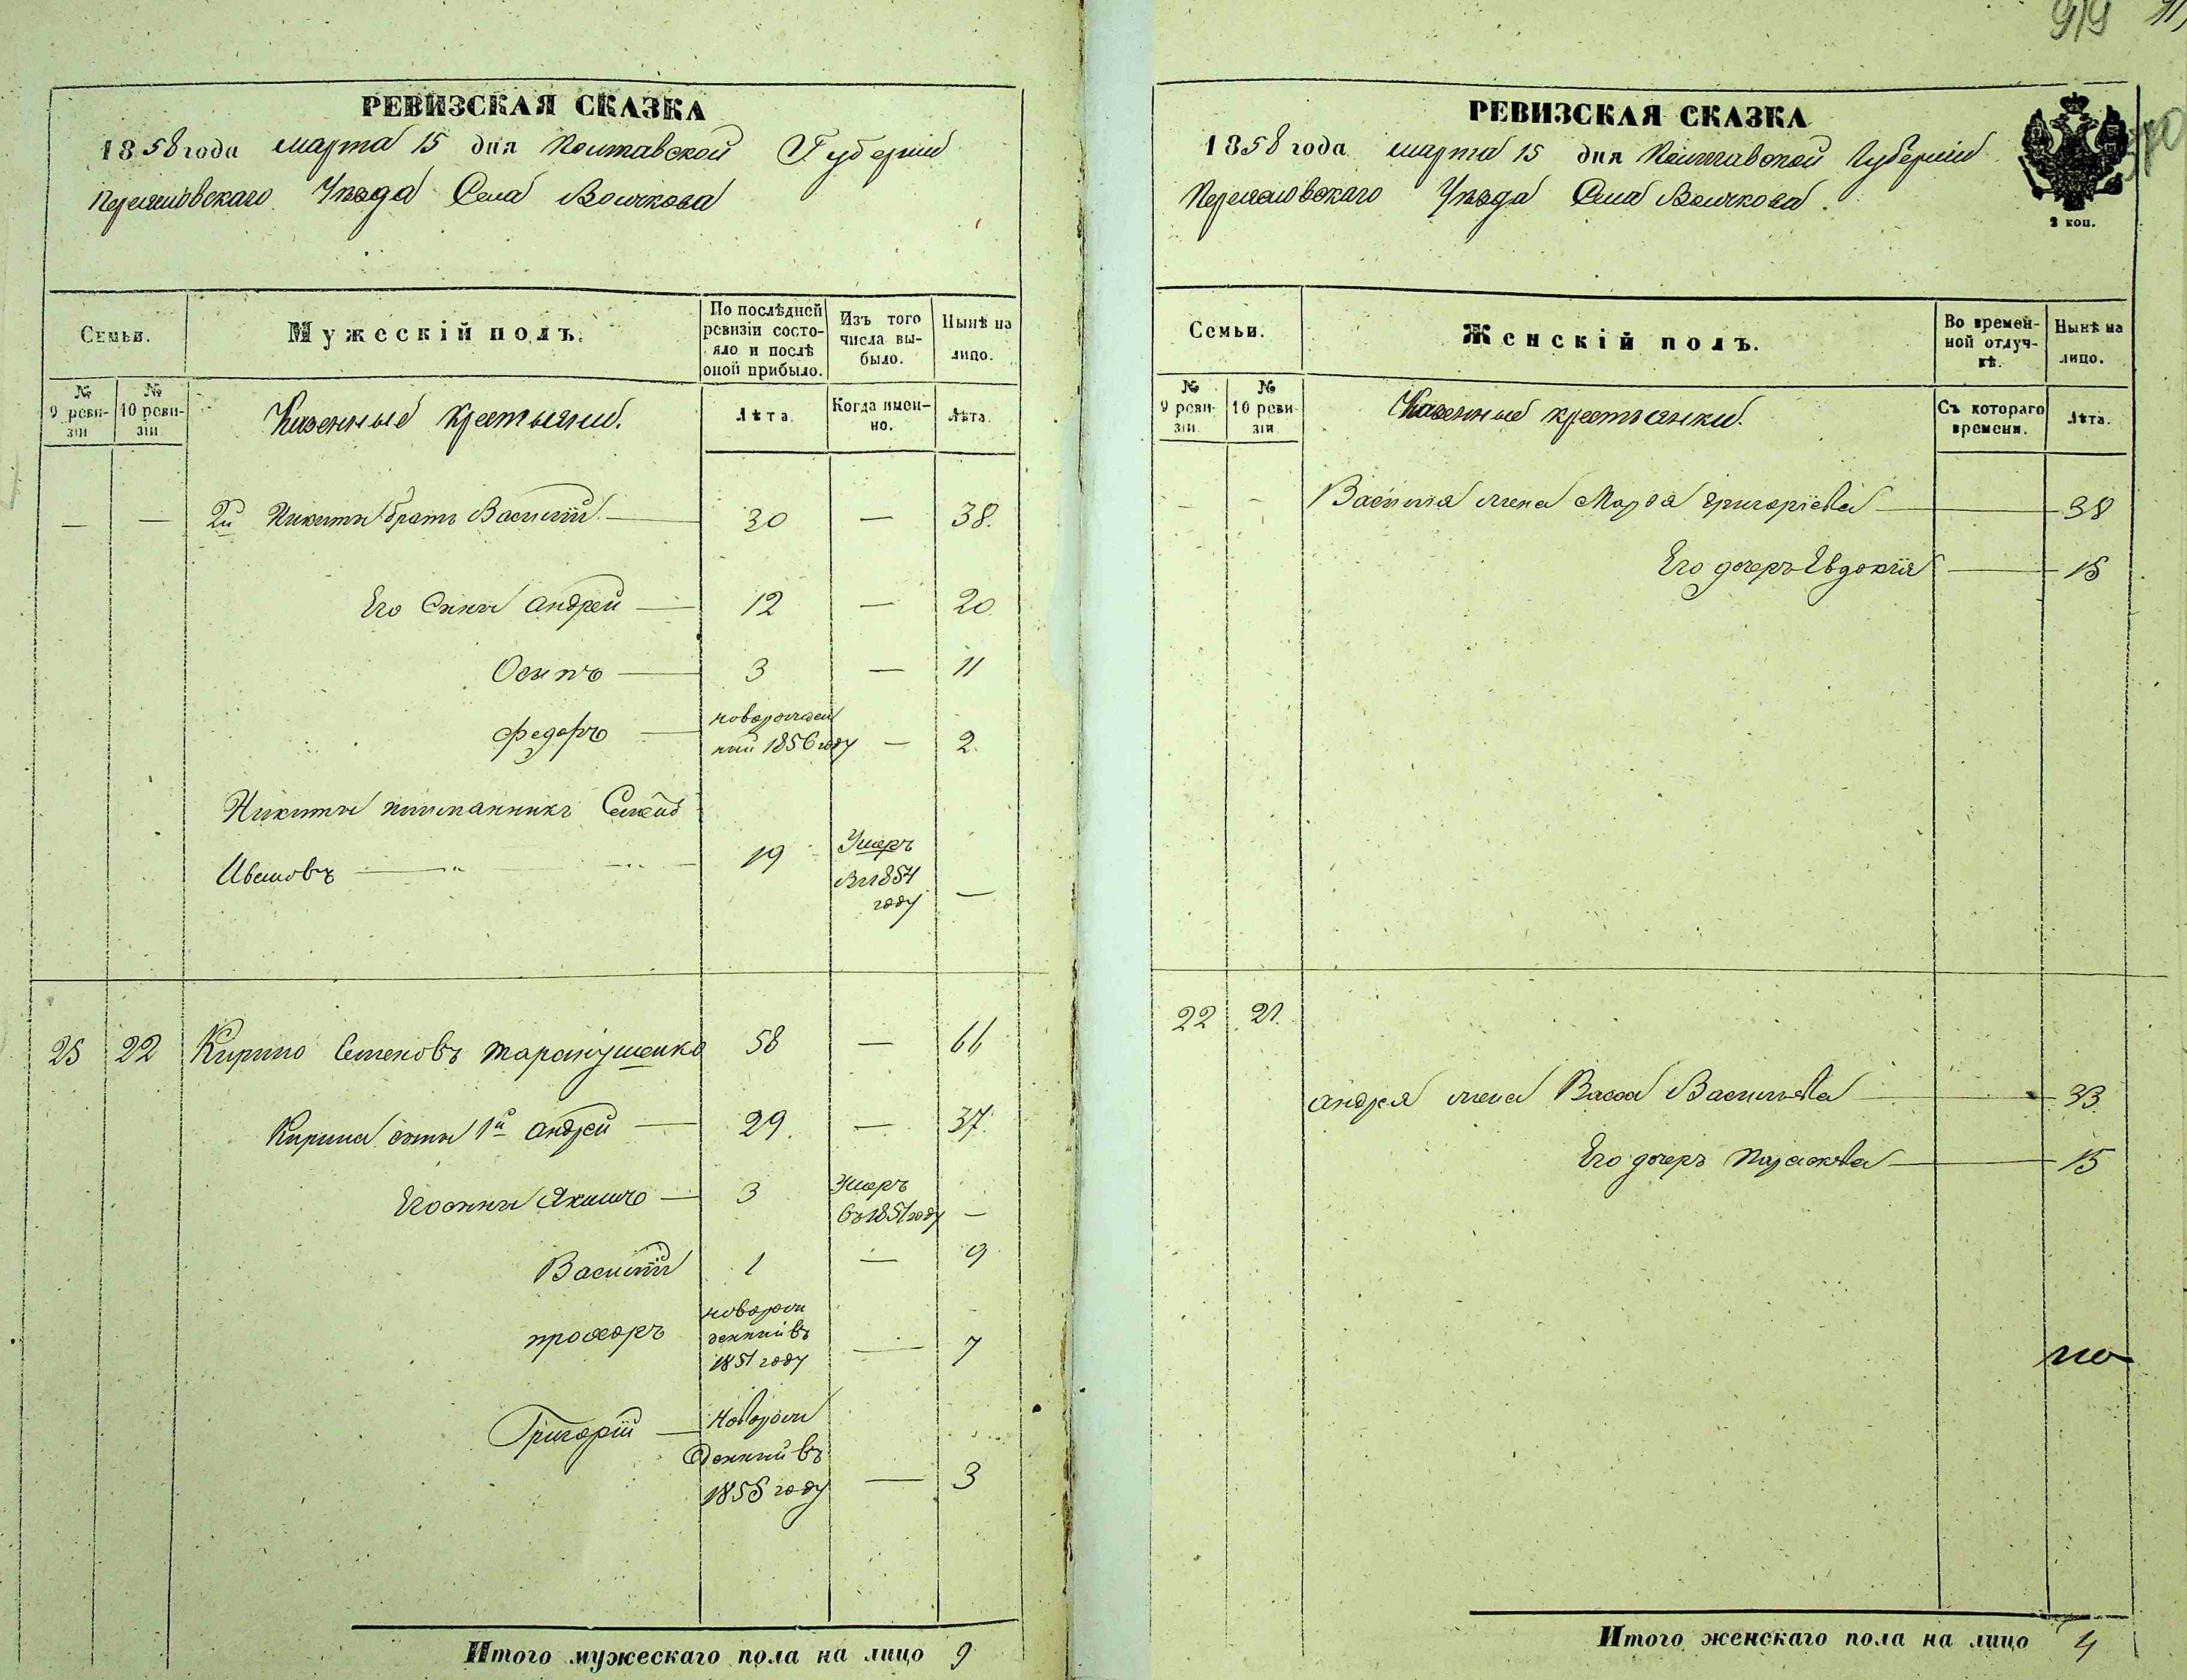 РЕВИЗСКАЯ СКАЗКА
1858 года марта 15 дня Полтавской Губернии
Переяславскаго Уѣзда Села Волчкова
Семьи.
Мужескій полъ.
По послѣдней ревизіи состояло и послѣ оной прибыло.
Изъ того числа выбыло.
Нынѣ на лицо.
№ 9 ревизіи
№ 10 ревизіи
Казенные крестьяни.
Лѣта.
Когда именно.
Лѣта.
— — 2й Никиты братъ Василій — 30 — 38.
Его Сыны Андрей — 12 — 20
Осипъ — 3 — 11
Федоръ — новорожден
ний 1856 году — 2
Никиты Семенъ
Ивановъ — 19 Умеръ
въ 1854
году —
25 22 Кирило Семеновъ Таранушенко 58 — 66
Кирила сыны 1й Андрей — 29. — 37.
Его сыны Якимъ — 3 Умеръ
въ 1851 году —
Василій 1 — 9
Прохоръ новорож
денний въ
1851 году — 7
Григорій — Новорож
денний въ
1855 году — 3
Итого мужескаго пола на лицо 9
919
РЕВИЗСКАЯ СКАЗКА
1858 года марта 15 дня Полтавской Губерніи
Переяславскаго Уѣзда Села Волчкова.
2 коп.
Семьи.
Женскій полъ.
Во временной отлучкѣ.
Нынѣ на лицо.
№ 9 ревизіи.
№ 10 ревизіи
Казенные крестьянки.
Съ котораго времени.
Лѣта.
— — Василія жена Марфа Григоріева — 38
Его дочерь Евдокія — 15
22 21.
Андрея жена Васса Васильева — 33
Его дочерь Параскева — 15
по
Итого женскаго пола на лицо 4